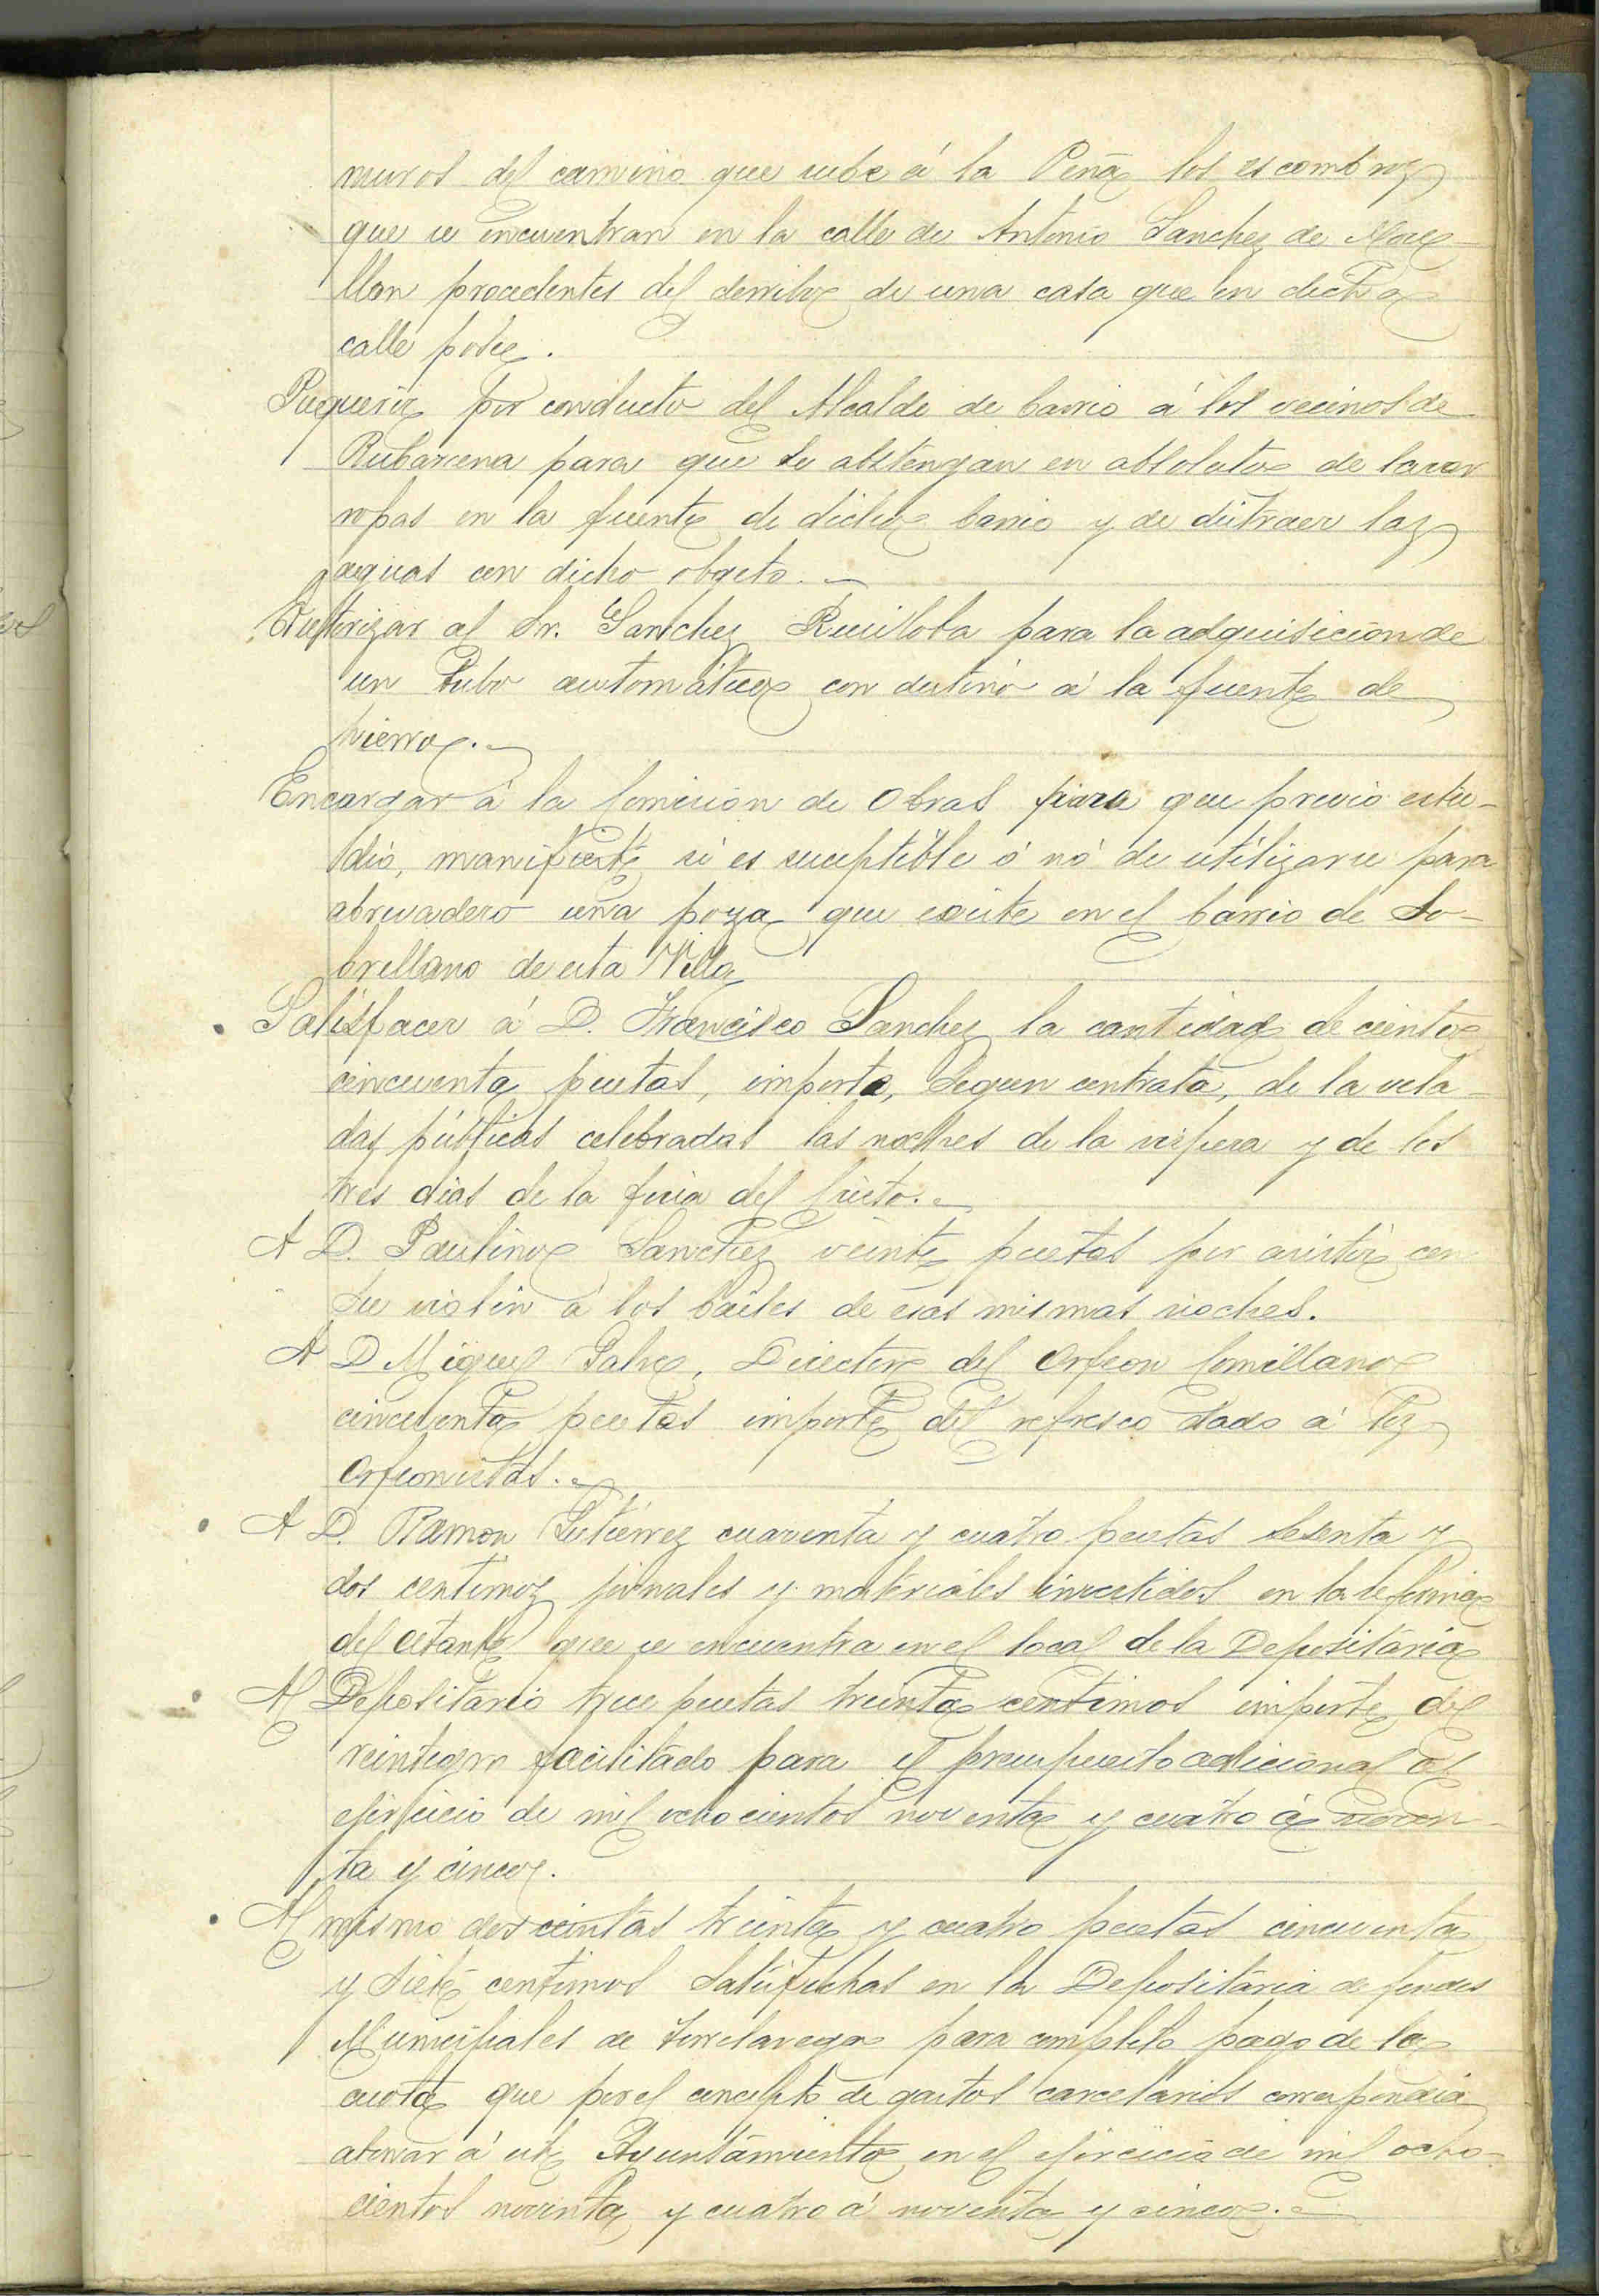 muros del camino que sube á la Peña los escombros
que se encuentran en la calle de Antonio Sanchez de Move-
llan procedentes del derribo de una casa que en dicha
calle posee.
Requerir por conducto del Alcalde de barrio á los vecinos de
Rubarcena para que se abstengan en absoluto de lavar
ropas en la fuente de dicho barrio y de distraer las
aguas con dicho objeto.
Autorizar al Sr. Sanchez Ruiloba para la adquisicion de
un tubo automático con destino á la fuente de
hierro.
Encargar á la Comision de Obras para que previo estu-
dio, manifieste si es suceptible ó nó de utilizarse para
abrevadero una poza que existe en el barrio de So-
brellano de esta Villa
Satisfacer á D. Francisco Sanchez la cantidad de ciento
cincuenta pesetas, importe, segun contrata, de la vela-
das públicas celebradas las noches de la vispera y de los
tres dias de la feria del Cristo.
A D. Paulino Sanchez veinte pesetas por asistir con
su violin á los bailes de esas mismas noches.
A D Miguel Calvo, Director del Orfeon Comillano
cincuenta pesetas importe del refresco dado á los
Orfeonistas.
A D. Ramon Gutierrez cuarenta y cuatro pesetas sesenta y
dos centimos jornales y materiales invertidos en la reforma
del estante que se encuentra en el local de la Depositaría
Al Depositario trece pesetas treinta centimos importe del
reintegro facilitado para el presupuesto adicional al
ejercicio de mil ochocientos noventa y cuatro á noven-
ta y cinco.
Al mismo doscientas treinta y cuatro pesetas cincuenta
y siete centimos satisfechas en la Depositaria de fondos
Municipales de Torrelavega para completo pago de la
cuota que por el concepto de gastos carcelarios correspondia
abonar á este Ayuntamiento en el ejercicio de mil ocho-
cientos noventa y cuatro á noventa y cinco.